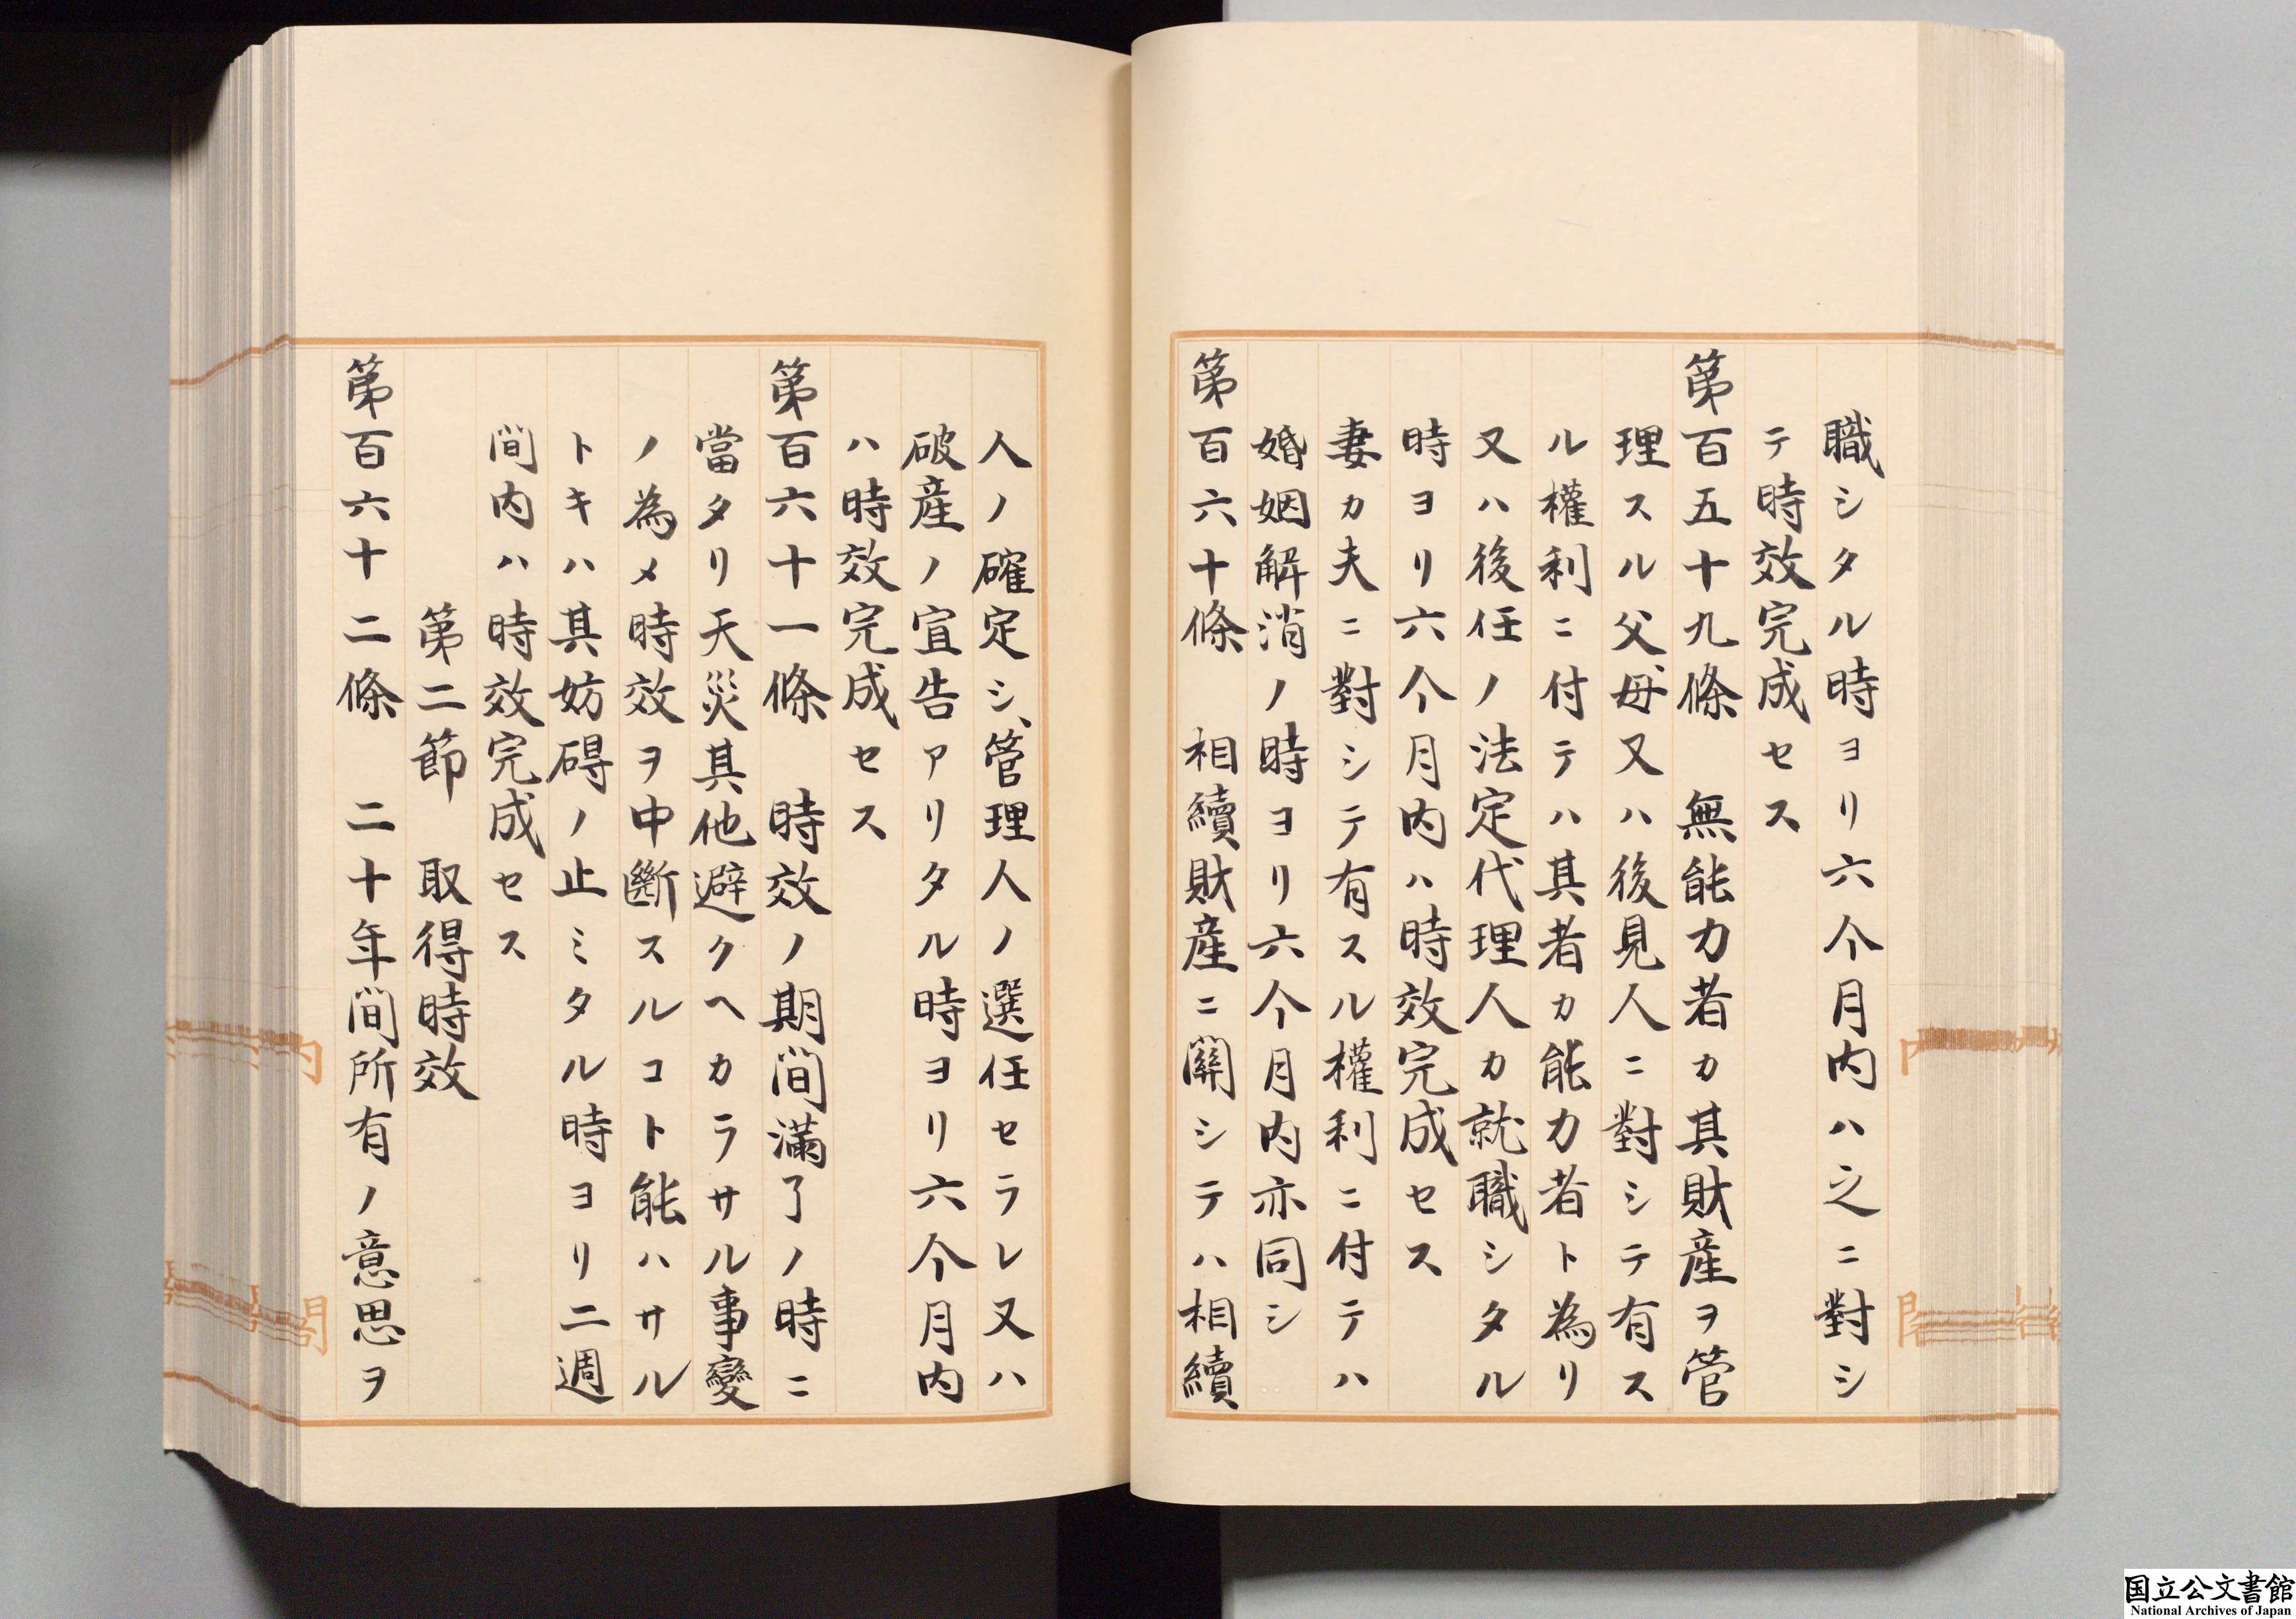 職シタル時ヨリ六个月内ハ之ニ對シ
テ時效完成セス
第百五十九條　無能力者カ其財産ヲ管
理スル父母又ハ後見人ニ對シテ有ス
ル權利ニ付テハ其者カ能力者ト為リ
又ハ後任ノ法定代理人カ就職シタル
時ヨリ六个月内ハ時效完成セス
妻カ夫ニ對シテ有スル權利ニ付テハ
婚姻解消ノ時ヨリ六个月内亦同シ
第百六十條　相續財産ニ關シテハ相續
人ノ確定シ、管理人ノ選任セラレ又ハ
破産ノ宣告アリタル時ヨリ六个月内
ハ時效完成セス
第百六十一條　時效ノ期間滿了ノ時ニ
當タリ天災其他避クヘカラサル事變
ノ為メ時效ヲ中斷スルコト能ハサル
トキハ其妨碍ノ止ミタル時ヨリ二週
間内ハ時效完成セス
第二節　取得時效
第百六十二條　二十年間所有ノ意思ヲ
国立公文書館
National Archives of Japan